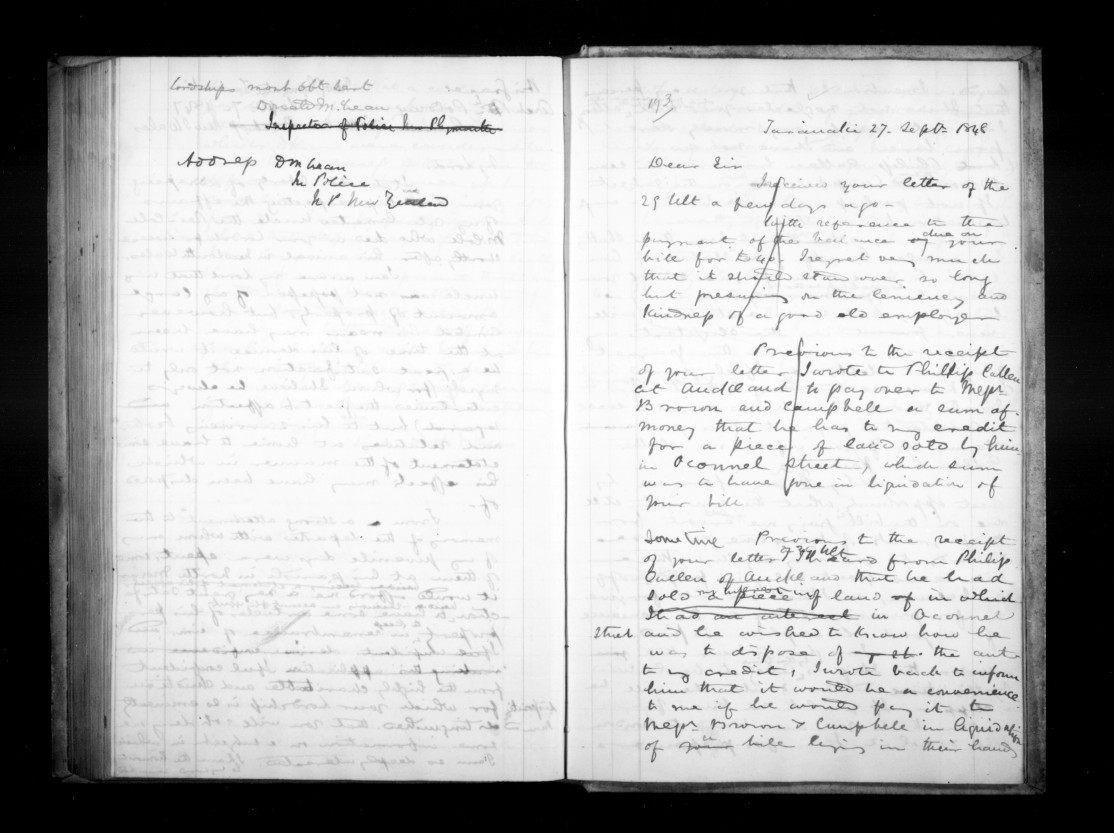 lordships most obt Sert
Donald McLean
Inspector of Police New Plymouth
Address D McLean
In Police
N P New Zealand
193
Taranaki 27. Sept. 1848
Dear Sir
I received your letter of the
29 Ult a few days ago -
With reference to the
payment of the balance due on your
bill for £40. I regret very much
that it should stand over so long
but presuming on the leniency and
kindness of a good old employer
Previous to the receipt
of your letter I wrote to Phillip Callen
at Auckland to pay over to Messrs
Brown and Campbell a sum of
money that he has to my credit
for a piece of land sold by him
in Oconnel Street, which sum
was to have gone in liquidation of
your bill
Sometime Previous to the receipt
of your letter of 29 Ult I heard from Philip
Callen of Auckland that he had
sold my interest in a piece of land of in which
I had an interest in Oconnel
Street and he wished to know how he
was to dispose of the amt
to my credit, I wrote back to inform
him that it would be a convenience
to me if he would pay it to
Messrs Brown & Campbell in liquidation
of your bill lying in their hands